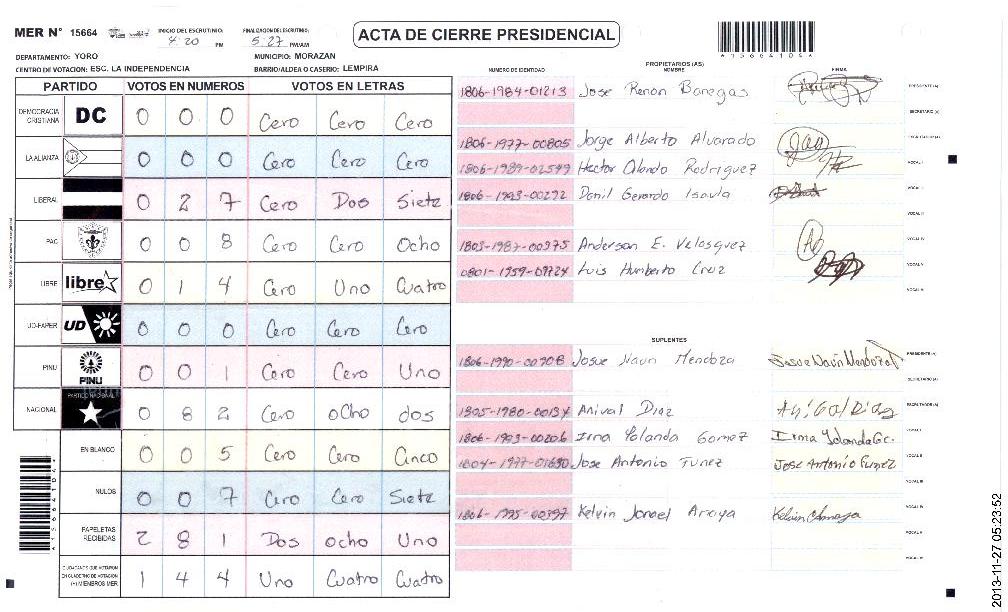 MER N° 15664 INICIO DEL ESCRUTINIO: 4:20 PM FINALIZACION DEL ESCRUTINIO: 5:27 PM/AM ACTA DE CIERRE PRESIDENCIAL
DEPARTAMENTO: YORO MUNICIPIO: MORAZAN
CENTRO DE VOTACION: ESC. LA INDEPENDENCIA BARRIO/ALDEA O CASERIO: LEMPIRA
PARTIDO VOTOS EN NUMEROS VOTOS EN LETRAS
DEMOCRACIA CRISTIANA DC 0 0 0 Cero Cero Cero
LA ALIANZA 0 0 0 Cero Cero Cero
LIBERAL 0 2 7 Cero Dos Siete
PAC 0 0 8 Cero Cero Ocho
LIBRE libre 0 1 4 Cero Uno Cuatro
UD-FAPER UD 0 0 0 Cero Cero Cero
PINU PINU 0 0 1 Cero Cero Uno
NACIONAL PARTIDO NACIONAL 0 8 2 Cero ocho dos
EN BLANCO 0 0 5 Cero Cero Cinco
NULOS 0 0 7 Cero Cero Siete
PAPELETAS RECIBIDAS 2 8 1 Dos ocho Uno
CIUDADANOS QUE VOTARON EN CUADERNO DE VOTACION (+) MIEMBROS MER 1 4 4 Uno Cuatro Cuatro
PROPIETARIOS (AS)
NUMERO DE IDENTIDAD NOMBRE FIRMA
1806-1984-01213 Jose Renon Banegas PRESIDENTE (A)
SECRETARIO (A)
1806-1977-00805 Jorge Alberto Alvarado ESCRUTADOR (A)
1806-1989-02549 Hector Orlando Rodriguez VOCAL I
1806-1993-00272 Danil Gerardo Isaula VOCAL II
VOCAL III
1803-1987-00975 Anderson E. Velasquez VOCAL IV
0801-1959-07724 Luis Humberto Cruz VOCAL V
VOCAL VI
SUPLENTES
1806-1990-00708 Josue Naun Mendoza Josue Naún Mendoza PRESIDENTE (A)
SECRETARIO (A)
1805-1980-00134 Anival Diaz Anibal Diaz ESCRUTADOR (A)
1806-1993-00206 Irma Yolanda Gomez Irma Yolanda Gc. VOCAL I
1804-1977-01690 Jose Antonio Funez Jose Antonio Funez VOCAL II
VOCAL III
1806-1995-00397 Kelvin Jonael Amaya Kelvin Amaya VOCAL IV
VOCAL V
VOCAL VI
2013-11-27 05:23:52